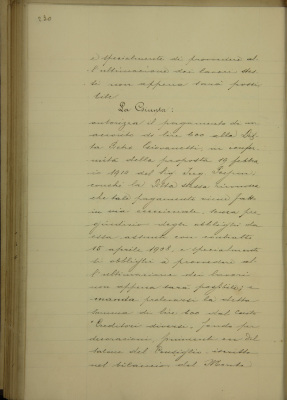 230
e specialmente di provvedere al
l'ultimazione dei lavori stes
si non appena sarà possi
bile
La Giunta:
autorizza il pagamento di un
acconto di lire 200 alla Dit
ta Giovanetti, in confor
mità della proposta 19 febbra
io 1910 del Sig. Ing.
la Ditta stessa
che tale pagamento viene fatto
in via eccezionale, senza pre
giudizio degli obblighi da
essa assunti con contratto
15 aprile 1908 e specialmente
di obblighi a provvedere al
l'ultimazione dei lavori
non appena sarà possibile, e
manda prelevarsi la detta
somma di lire 200 dal conto
"Creditori diversi, fondo per
decorazioni,
del Consiglio, iscritto
nel bilancio del Monte